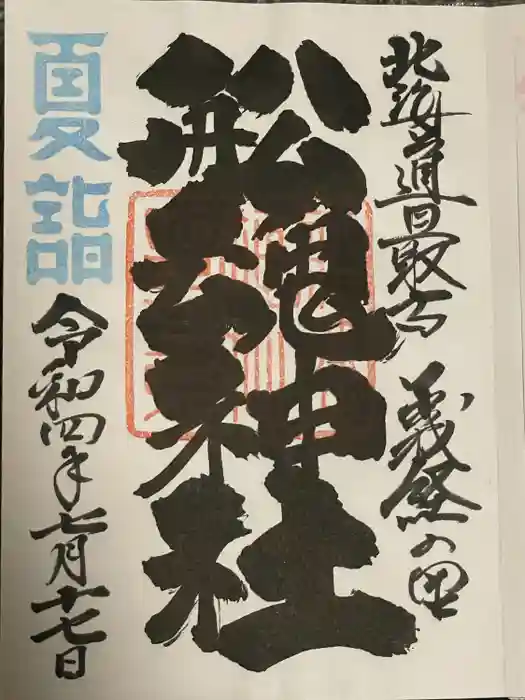 北海道最古 義経の里
船魂神社
夏詣
令和四年七月十七日